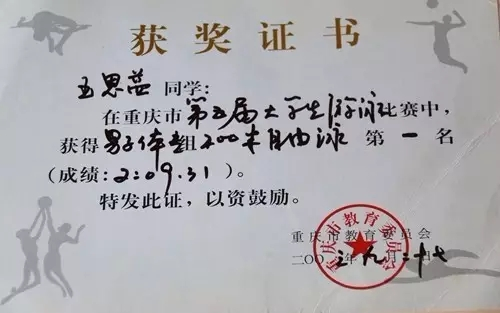 获奖证书
王思蕊 同学:
在重庆市第五届大学生游泳比赛中,
获得男子体组200米自由泳 第 一 名
(成绩:2:09.31)。
特发此证,以资鼓励。
重庆市教育委员会
二〇〇三年九月二十七日
重庆市教育委员会